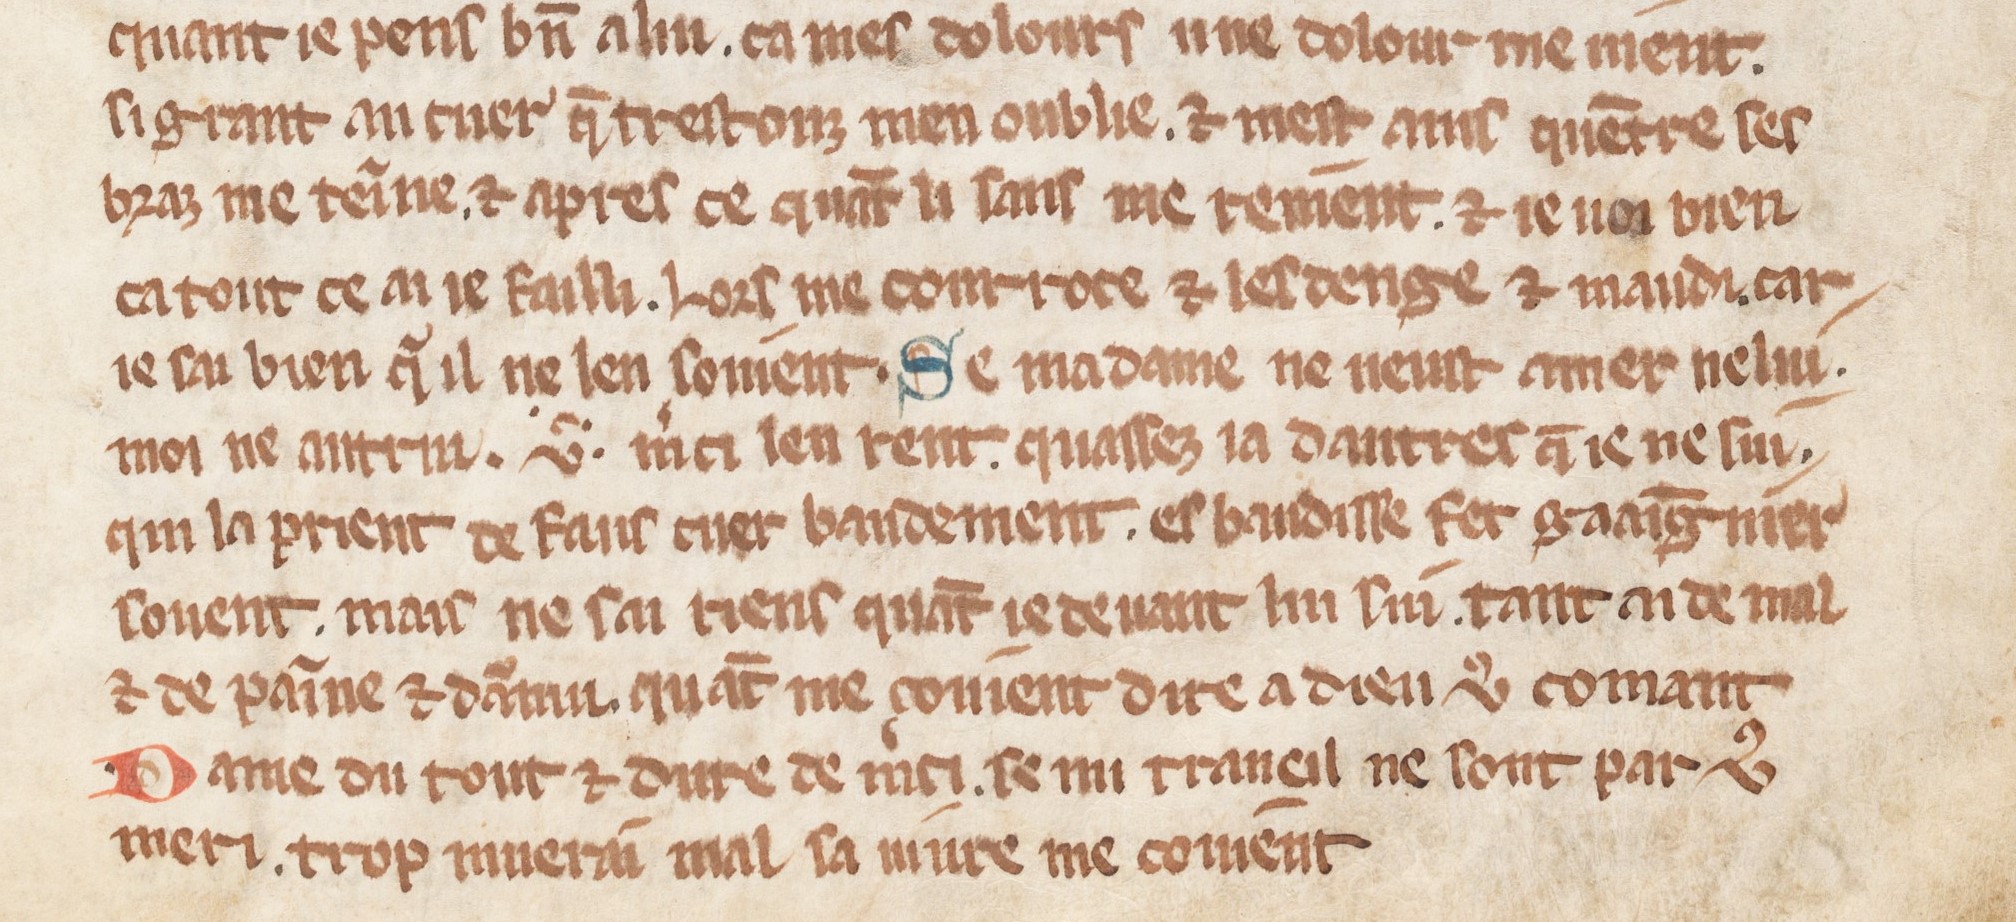 quant ie pens bn̄ a lui . ca mes dolours une dolour me uient .
si grant au cuer q̄ trestouz men oublie . ⁊ mest auis quētre ses
braz me teĩne . ⁊ apres ce quāt li sans me reuient . ⁊ ie uoi bien
ca tout ce ai ie failli . Lors me courroce ⁊ lesdenge ⁊ maudi . car
ie sai bien qͣ il ne len souient . Se madame ne ueust amer nelui .
moi ne autrui . vͣ . mͥci len rent . quassez ia dautres q̄ ie ne sui .
qui la prient de faus cuer baudement . esbaudisse fet gaaīgnier
souent . mais ne sai riens quāt ie deuant lui sui . tant ai de mal
⁊ de paĩne ⁊ dānui . quāt me couient dire a dieu vͦ comant
Dame du tout ⁊ dure de mͥci . se mi traueil ne sont par vͦ
meri . trop muerai mal sa uiure me couient